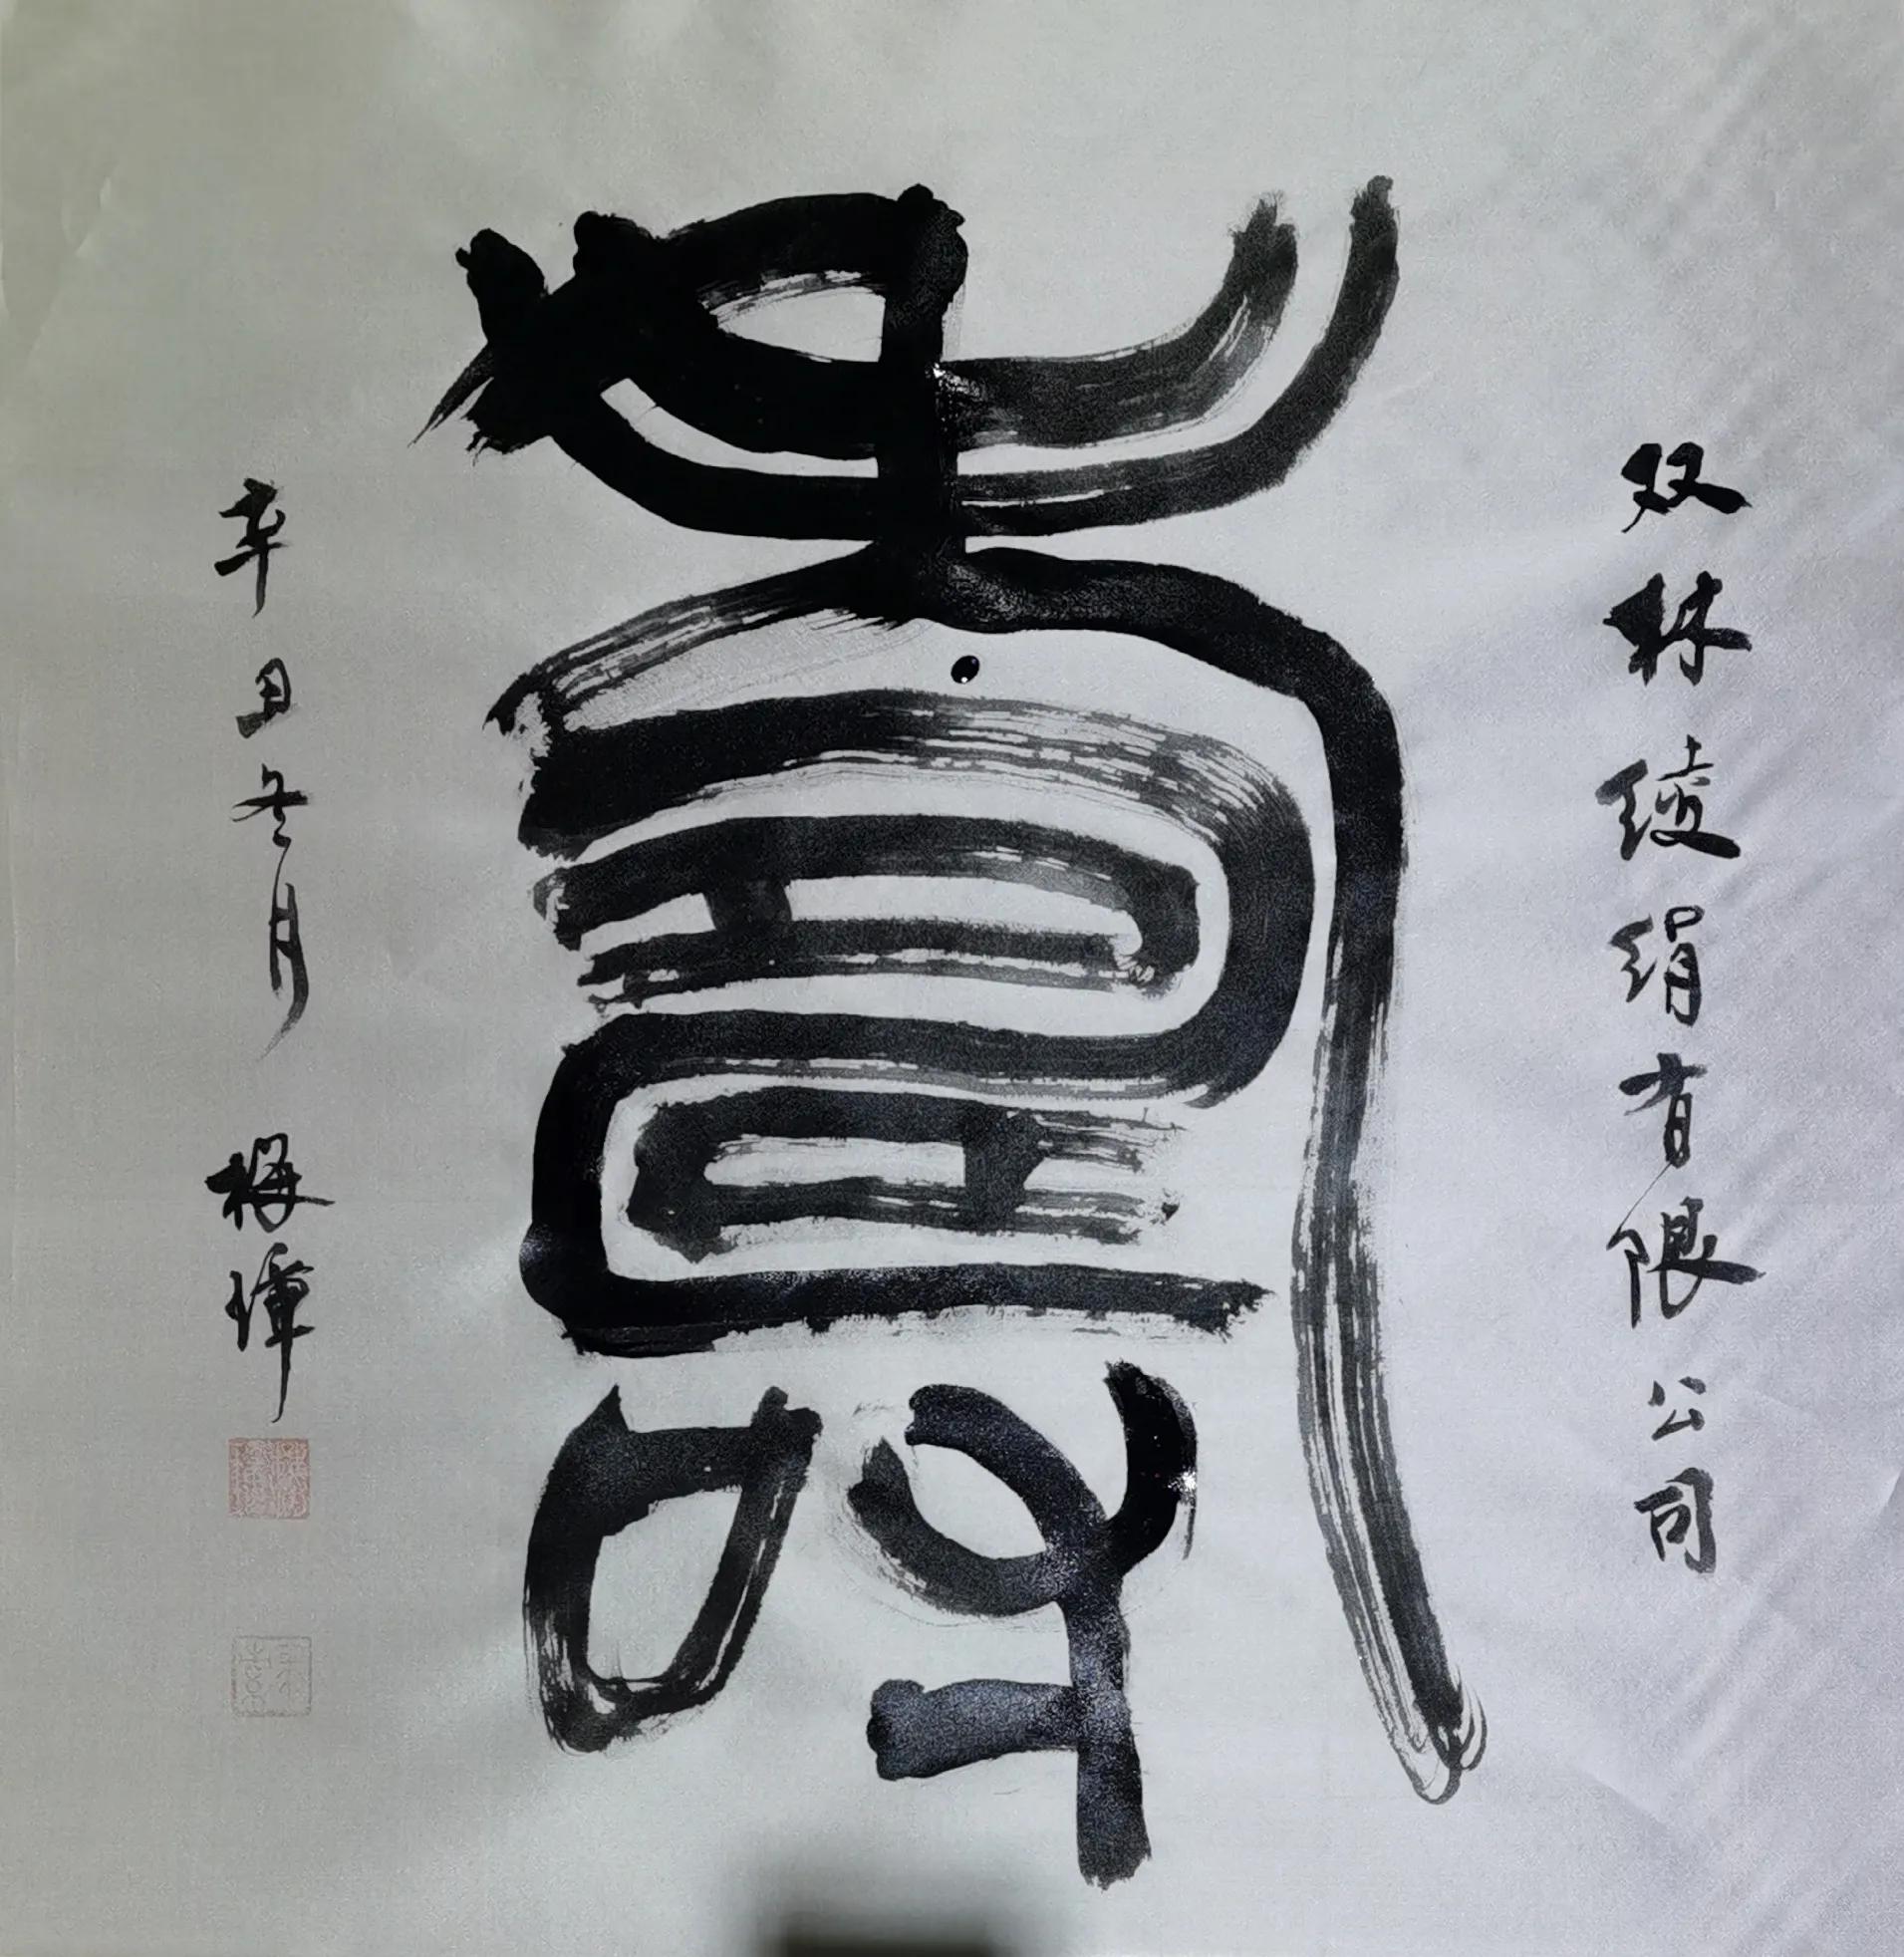 双林绫绢有限公司
壽
辛丑冬月 梅漳